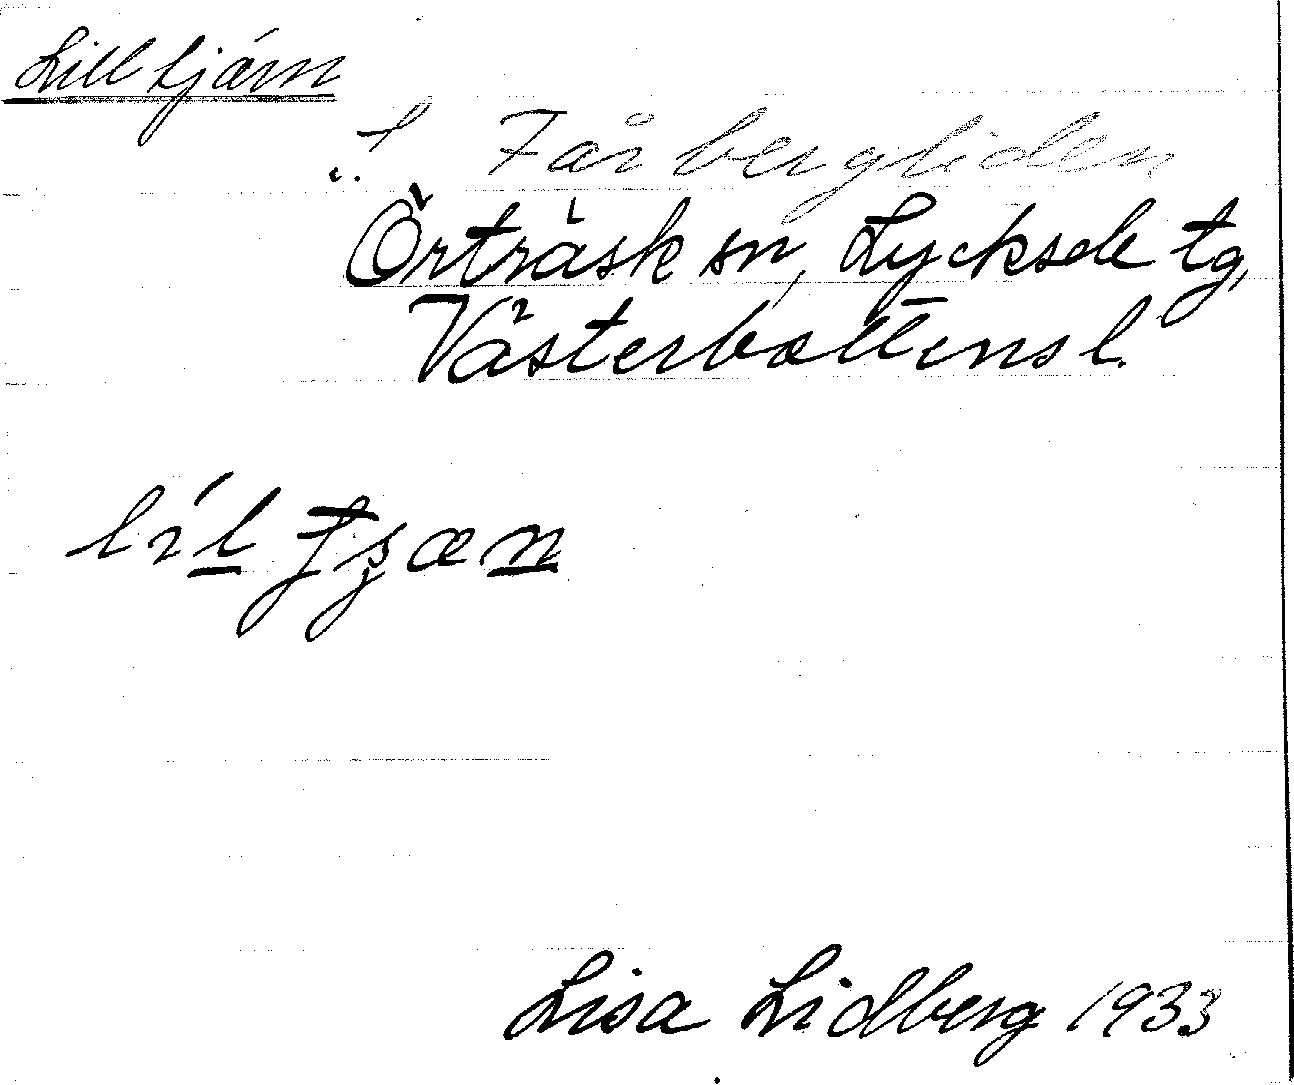 Lilltjärn
Fårbergliden
Örträsk sn, Lycksele tg,
Västerbottens l.
Lisa Lidberg 1933